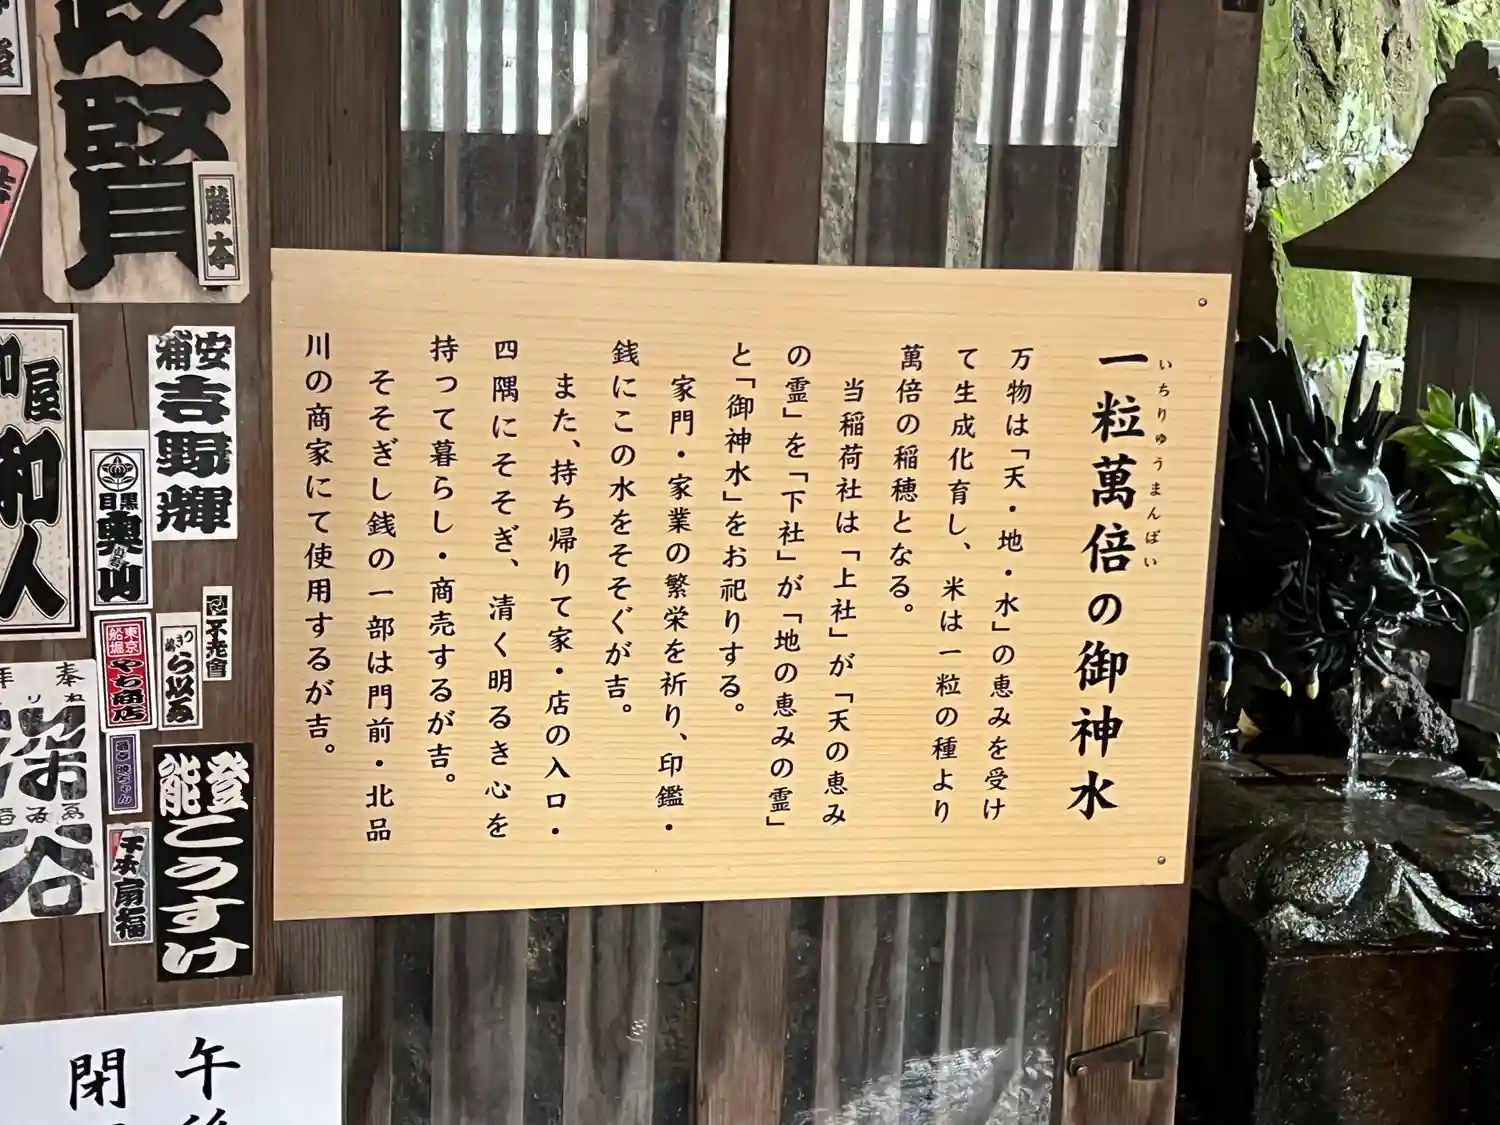 一粒萬倍の御神水
いちりゅうまんばい
万物は「天・地・水」の恵みを受け
て生成化育し、米は一粒の種より
萬倍の稲穂となる。
当稲荷社は「上社」が「天の恵み
の霊」を「下社」が「地の恵みの霊」
と「御神水」をお祀りする。
家門・家業の繁栄を祈り、印鑑・
銭にこの水をそそぐが吉。
また、持ち帰りて家・店の入口・
四隅にそそぎ、清く明るき心を
持って暮らし・商売するが吉。
そそぎし銭の一部は門前・北品
川の商家にて使用するが吉。
賢
藤本
安
浦
吉野輝
屋
和人
目黒
奥山
東京
船堀
やち商店
不老會
ら以石
奉
深
谷
千本
扇福
能登
こうすけ
午後
閉